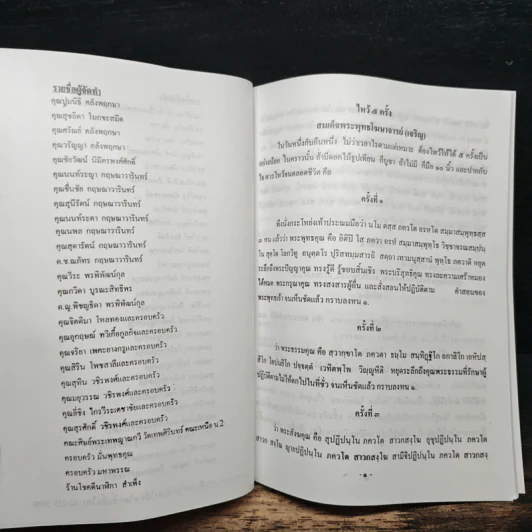 รายชื่อผู้จัดทำ
คุณปูมนิธิ คลังพฤกษา
คุณสุขธิดา ไนกชะสมิต
คุณศรัณย์ คลังพฤกษา
คุณวรัญญา คลังพฤกษา
คุณชัยวัฒน์ นิมิตรพงศ์ศักดิ์
คุณนนท์ระญา กฤษณาวารินทร์
คุณชื่นชัย กฤษณาวารินทร์
คุณสุนีรัตน์ กฤษณาวารินทร์
คุณนนท์ระดา กฤษณาวารินทร์
คุณนพล กฤษณาวารินทร์
คุณสุดารัตน์ กฤษณาวารินทร์
ด.ช.ณภัทร กฤษณาวารินทร์
คุณวีระ พรพิพัฒน์กุล
คุณกวิตา บูรณะสิทธิพร
ด.ญ.พิชญธิดา พรพิพัฒน์กุล
คุณจิตติมา ไหลทองและครอบครัว
คุณอุกฤษณ์ ทวีเกื้อกูลกิจและครอบครัว
คุณจริยา เพคะยางกูรและครอบครัว
คุณสิริน ไพชสาลีและครอบครัว
คุณสุทิน วชิรพงศ์และครอบครัว
คุณมยุวรรณ วชิรพงศ์และครอบครัว
คุณกี่ซิง ไกรวีระเดชาชัยและครอบครัว
คุณสุรศักดิ์ วชิรพงศ์และครอบครัว
คณะศิษย์พระเทพญาณกวี วัดเทพศิรินทร์ คณะเหนือ น.2
ครอบครัว มั่นพุทธคุณ
ครอบครัว มหาพรรณ
ร้านโชคดีนาฬิกา สำเพ็ง
ไหว้ ๕ ครั้ง
สมเด็จพระพุทธโฆษาจารย์ (เจริญ)
ในวันหนึ่งกับคืนหนึ่ง ไม่ว่าเวลาไรตามแต่เหมาะ ต้องไหว้ให้ได้ ๕ ครั้งเป็น
อย่างน้อย ในคราวนั้น ถ้ามีดอกไม้ธูปเทียน ก็บูชา ถ้าไม่มี ก็มือ ๑๐ นิ้ว และปากกับ
ใจ ควรไหว้จนตลอดชีวิต คือ
ครั้งที่ ๑
พึงนั่งกระโหย่งเท้าประณมมือว่า นโม ตสฺส ภควโต อรหโต สมฺมาสมฺพุทฺธสฺส
๓ หน แล้วว่า พระพุทธคุณ คือ อิติปิ โส ภควา อรหํ สมฺมาสมฺพุทฺโธ วิชฺชาจรณสมฺปนฺ
โน สุคโต โลกวิทู อนุตฺตโร ปุริสทมฺมสารถิ สตฺถา เทวมนุสฺสานํ พุทฺโธ ภควาติ หยุด
ระลึกถึงพระปัญญาคุณ ทรงรู้ดี รู้ชอบสิ้นเชิง พระบริสุทธิคุณ ทรงละความเศร้าหมอง
ได้หมด พระกรุณาคุณ ทรงสงสารผู้อื่น และสั่งสอนให้ปฏิบัติตาม คำสอนของ
พระพุทธเจ้า จนเห็นชัดแล้ว กราบลงหน ๑.
ครั้งที่ ๒
ว่า พระธรรมคุณ คือ สฺวากฺขาโต ภควตา ธมฺโม สนฺทิฏฺฐิโก อกาลิโก เอหิปสฺ
สิโก โอปนยิโก ปจฺจตฺตํ เวทิตพฺโพ วิญฺญูหีติ หยุดระลึกถึงคุณพระธรรมที่รักษาผู้
ปฏิบัติตามไม่ให้ตกไปในที่ชั่ว จนเห็นชัดแล้ว กราบลงหน ๑.
ครั้งที่ ๓
ว่า พระสังฆคุณ คือ สุปฏิปนฺโน ภควโต สาวกสงฺโฆ อุชุปฏิปนฺโน ภควโต
สาวกสงฺโฆ ญายปฏิปนฺโน ภควโต สาวกสงฺโฆ สามีจิปฏิปนฺโน ภควโต สาวกสงฺ